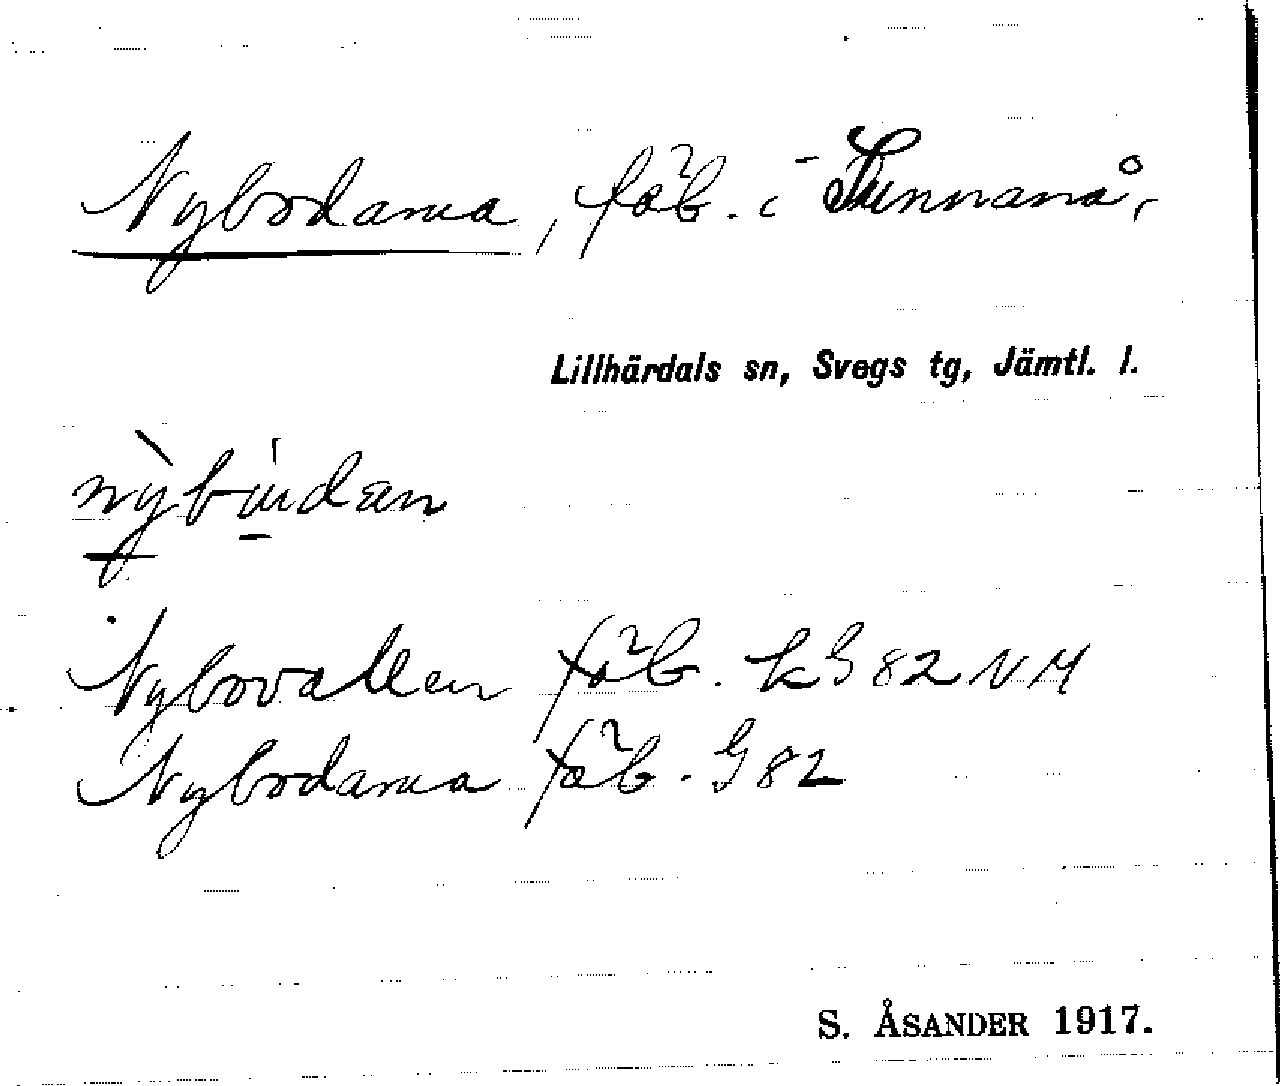 Nybodarna, fäb. i Sunnanå,
Lillhärdals sn, Svegs tg, Jämtl. l.
Nybovallen fäb. k G 82 NM
Nybodarna fäb. G 82
S. ÅSANDER 1917.